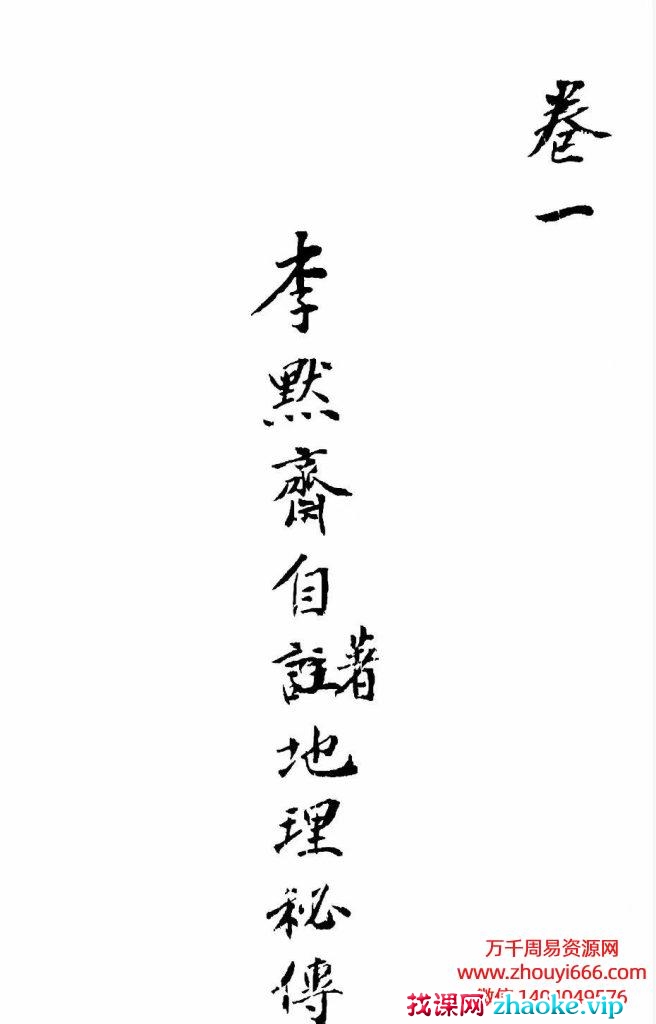 卷一
李默齋自註著地理秘傳
万千周易资源网
www.zhouyi666.com
找课网 zhaoke.vip